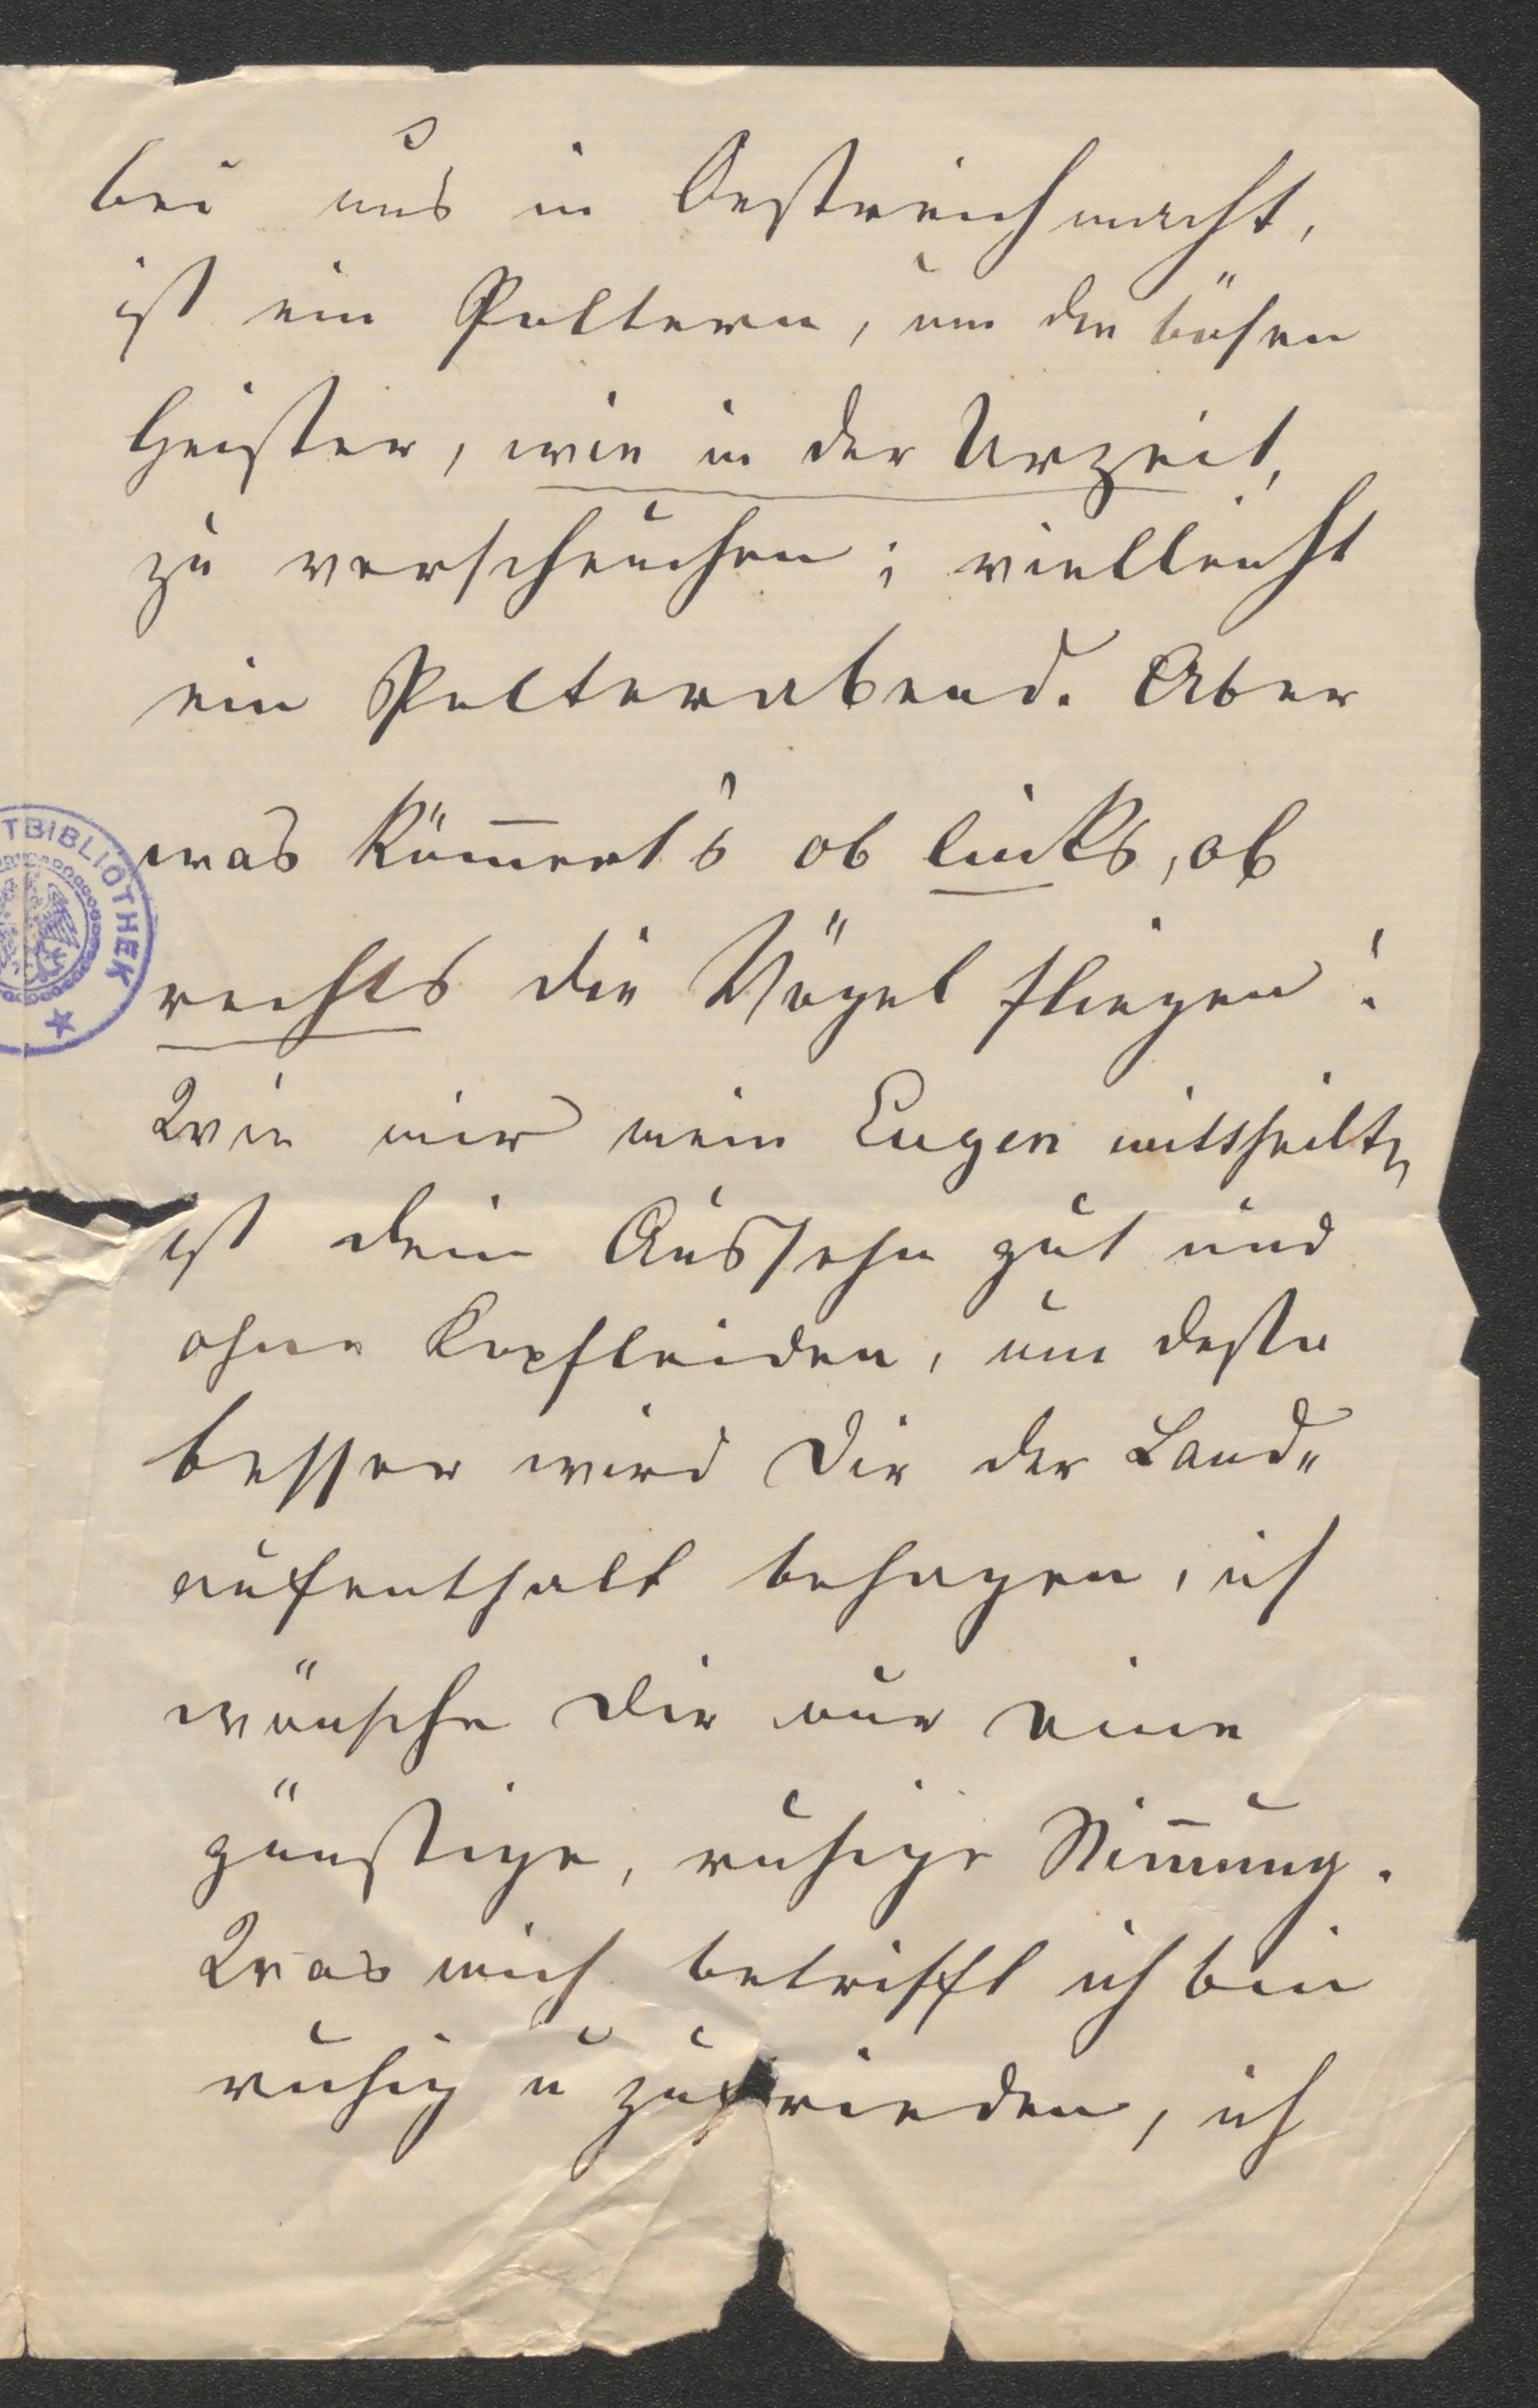 bei uns in Oestreich macht,
ist ein Poltern, um die bösen
Geister, wie in der Urzeit,
zu verscheuchen; vielleicht
ein Polterabend. Aber
was küm̄ert's ob links, ob
rechts die Vögel fliegen!
Wie mir mein Eugen mittheilt,
ist dein Aussehn gut und
ohne Kopfleiden, um desto
besser wird Dir der Land-
aufenthalt behagen, ich
wünsche Dir nur eine
günstige, ruhige Stim̄ung.
Was mich betrifft ich bin
ruhig u zufrieden, ich
TBIBLIOTHEK